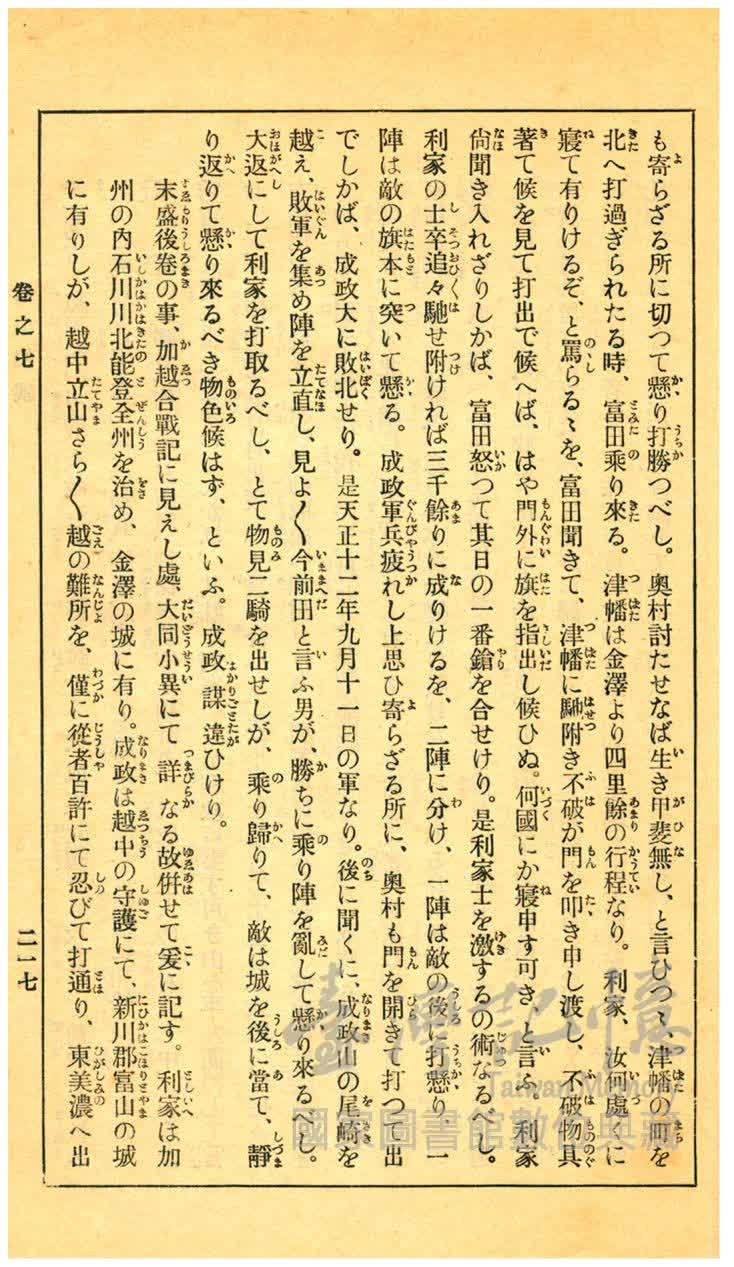 も寄らざる所に切つて懸り打勝つべし。奥村討たせなば生き甲斐無し、と言ひつゝ、津幡の町を
北へ打過ぎられたる時、富田乘り來る。津幡は金澤より四里餘の行程なり。利家、汝何處くに
寢て有りけるぞ、と罵らるゝを、富田聞きて、津幡に馳附き不破が門を叩き申し渡し、不破物具
著て候を見て打出で候へば、はや門外に旗を指出し候ひぬ。何國にか寢申す可き、と言ふ。利家
尙聞き入れざりしかば、富田怒つて其日の一番鎗を合せけり。是利家士を激するの術なるべし。
利家の士卒追々馳せ附ければ三千餘りに成りけるを、二陣に分け、一陣は敵の後に打懸り、一
陣は敵の旗本に突いて懸る。成政軍兵疲れし上思ひ寄らざる所に、奥村も門を開きて打つて出
でしかば、成政大に敗北せり。是天正十二年九月十一日の軍なり。後に聞くに、成政山の尾崎を
越え、敗軍を集め陣を立直し、見よ〱今前田と言ふ男が、勝ちに乘り陣を亂して懸り來るべし。
大返にして利家を打取るべし、とて物見二騎を出せしが、乘り歸りて、敵は城を後に當て、靜
り返りて懸り來るべき物色候はず、といふ。成政謀違ひけり。
末盛後卷の事、加越合戰記に見えし處、大同小異にて詳なる故倂せて爰に記す。利家は加
州の內石川川北能登全州を治め、金澤の城に有り。成政は越中の守護にて、新川郡富山の城
に有りしが、越中立山さら〱越の難所を、僅に從者百許にて忍びて打通り、東美濃へ出
卷之七
二一七
臺灣記憶
Taiwan Memory
國家圖書館數位典藏